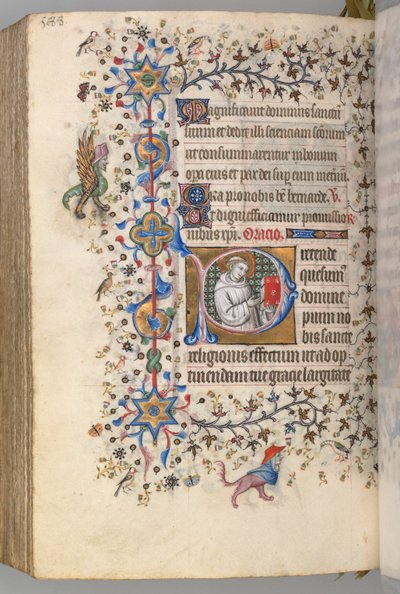 588
Magnificavit dominus sancti
suum et dedit illi scienciam scorum
ut consummarentur in bonum
opa eius et par dei sup eum
Ora pro nobis be bernarde. V
Ut digni efficiamur promissio
nibus xpi. Oracio.
quesum
domine
pium no
bis sancte
religionis effectum ut ad op
tinendam tue gracie largitate